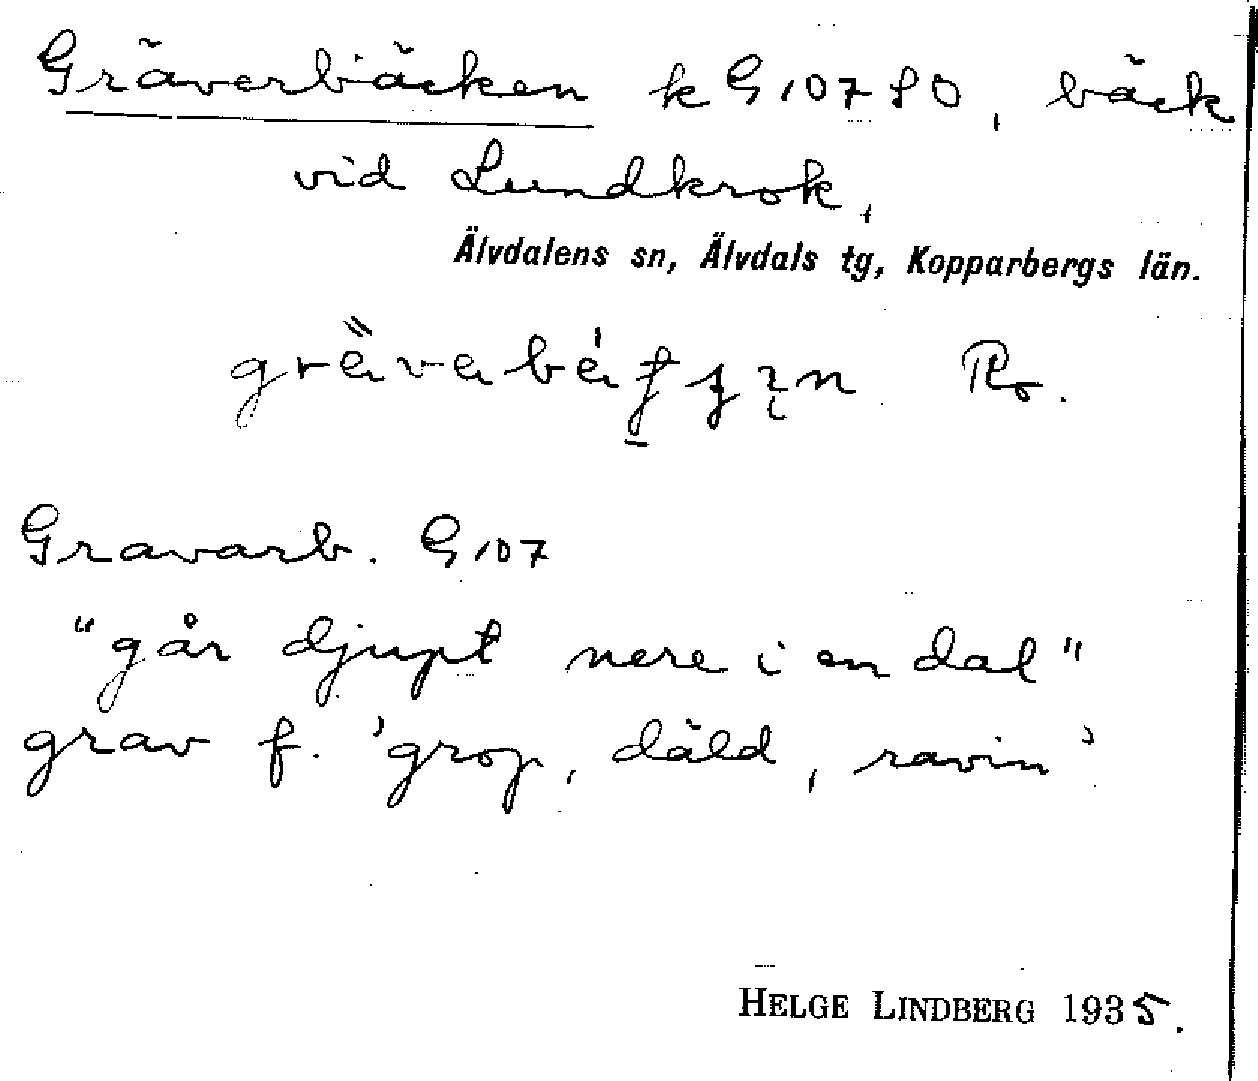 Gräverbäcken k G107 SO, bäck
vid Lundkrok,
Älvdalens sn, Älvdals tg, Kopparbergs län.
Ro.
Gravarb. G107
"går djupt nere i en dal"
grav f. 'grop, däld, ravin'
HELGE LINDBERG 1935.